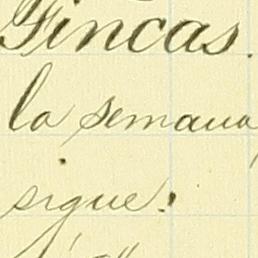 Fincas.
la semana
sigue: